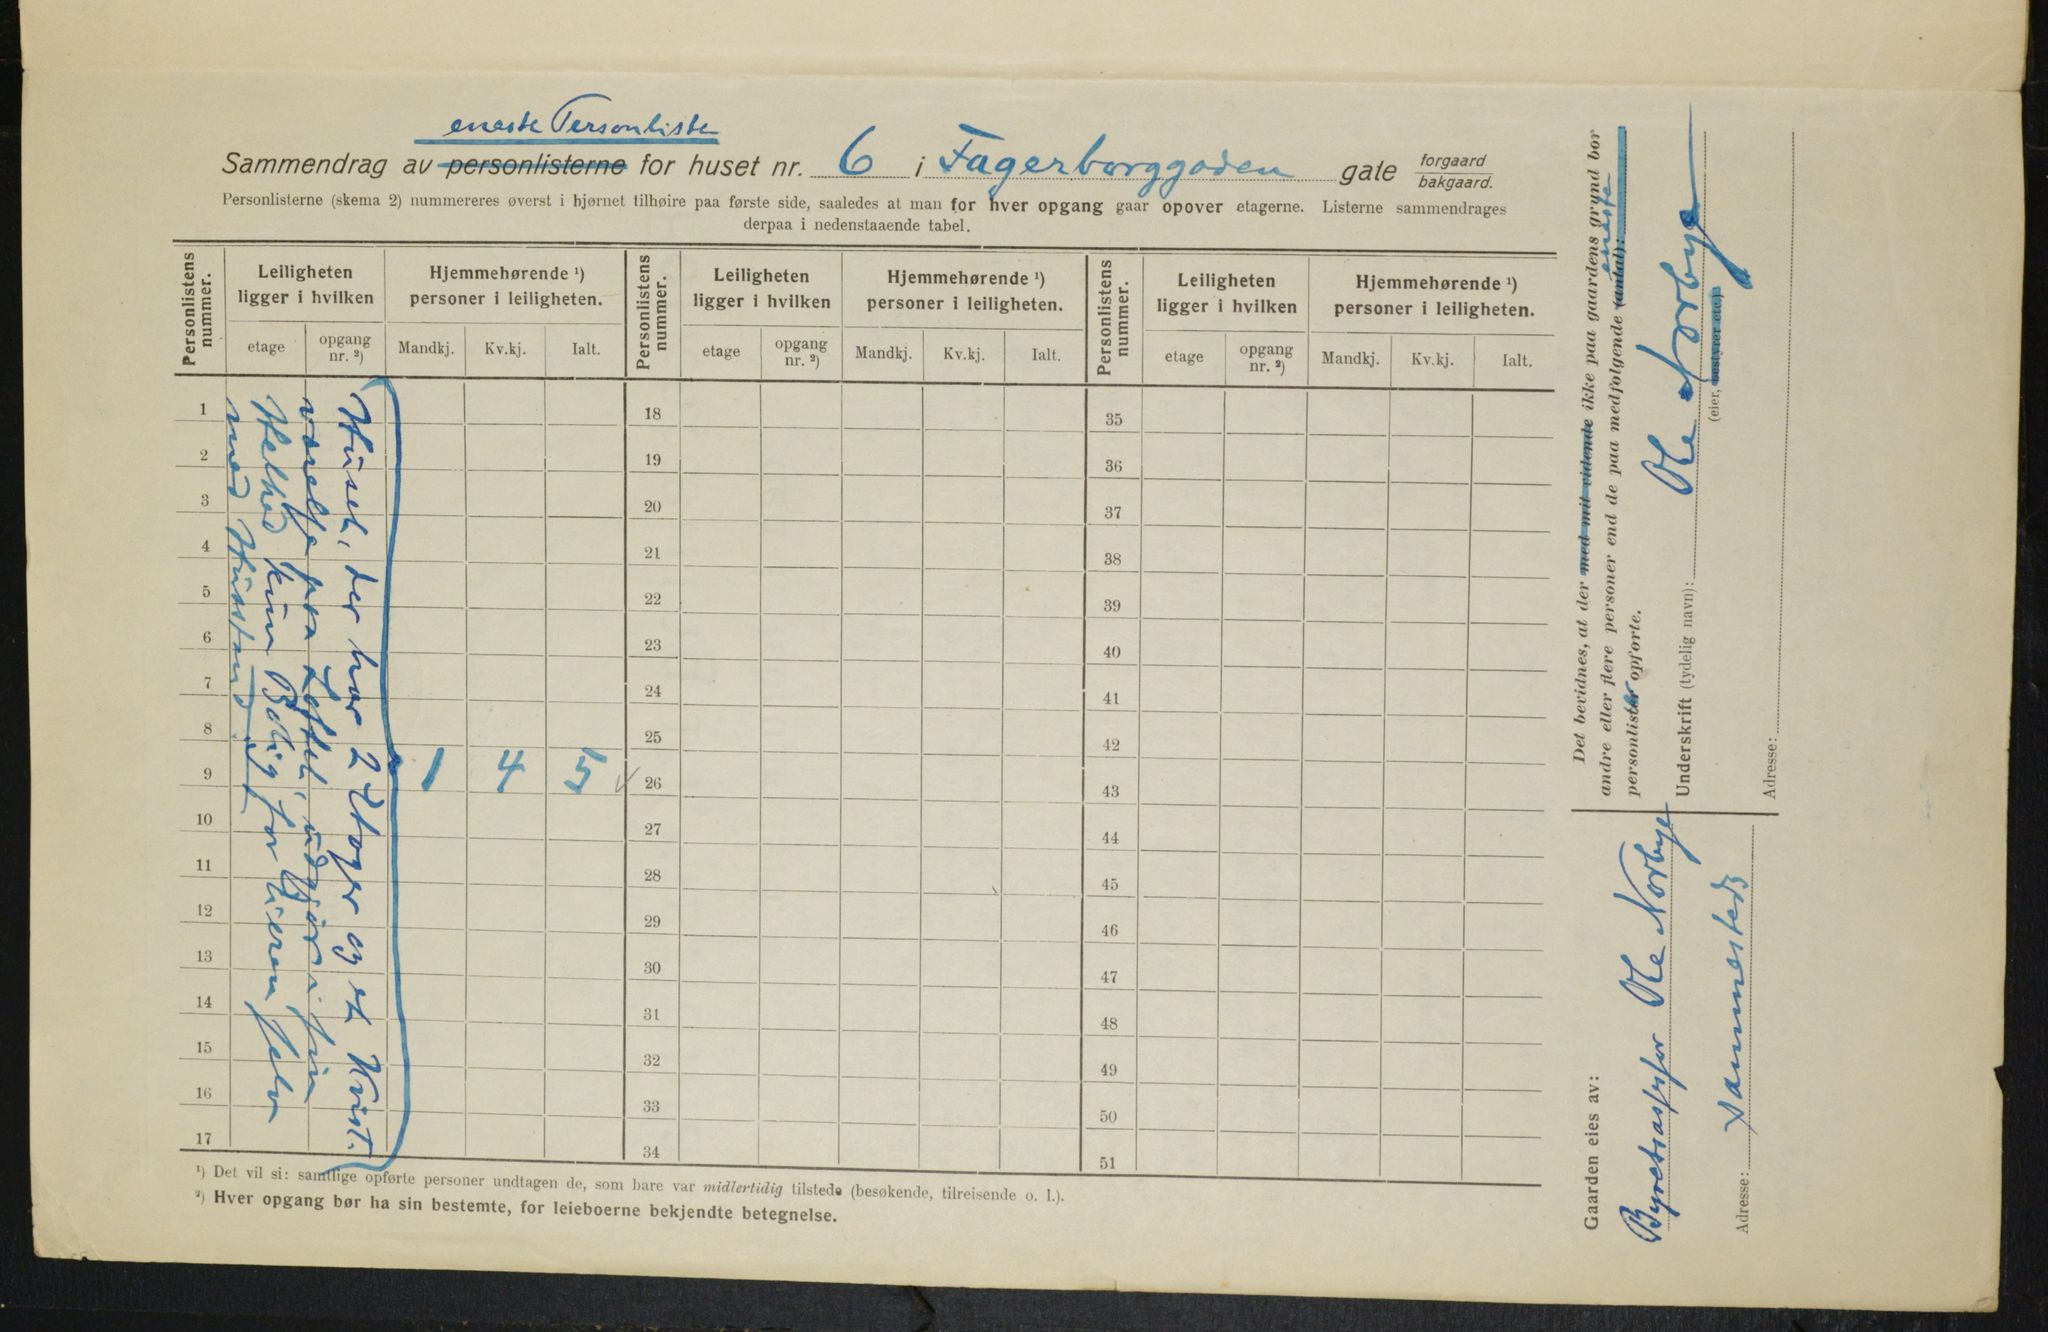 eneste Personliste
Sammendrag av personlisterne for huset nr. 6 i Fagerborggaden gate forgaard
bakgaard.
Personlisterne (skema 2) nummereres øverst i hjørnet tilhøire paa første side, saaledes at man for hver opgang gaar opover etagerne. Listerne sammendrages
derpaa i nedenstaaende tabel.
Personlistens nummer.
Leiligheten ligger i hvilken
Hjemmehørende ¹) personer i leiligheten.
Personlistens nummer.
Leiligheten ligger i hvilken
Hjemmehørende ¹) personer i leiligheten.
Personlistens nummer.
Leiligheten ligger i hvilken
Hjemmehørende ¹) personer i leiligheten.
etage opgang nr. ²) Mandkj. Kv.kj. Ialt. etage opgang nr. ²) Mandkj. Kv.kj. Ialt. etage opgang nr. ²) Mandkj. Kv.kj. Ialt.
1 18 35
2 19 36
3 20 37
4 21 38
5 22 39
6 23 40
7 24 41
8 25 42
9 1 4 5 26 43
10 27 44
11 28 45
12 29 46
13 30 47
14 31 48
15 32 49
16 33 50
17 34 51
Huset, der har 2 Etager og et Kvist.
værelse paa Loftet, udgjør i sin
Helhed kun Bolig for Eieren selv
med Husstand.
¹) Det vil si: samtlige opførte personer undtagen de, som bare var midlertidig tilstede (besøkende, tilreisende o. l.).
²) Hver opgang bør ha sin bestemte, for leieboerne bekjendte betegnelse.
Det bevidnes, at der med mit vidende ikke paa gaardens grund bor
andre eller flere personer end de paa medfølgende (antal): eneste
personlister opførte.
Underskrift (tydelig navn): Ole Norbye
(eier, bestyrer etc.)
Adresse:
Gaarden eies av:
Byretsassessor Ole Norbye
Adresse: sammesteds